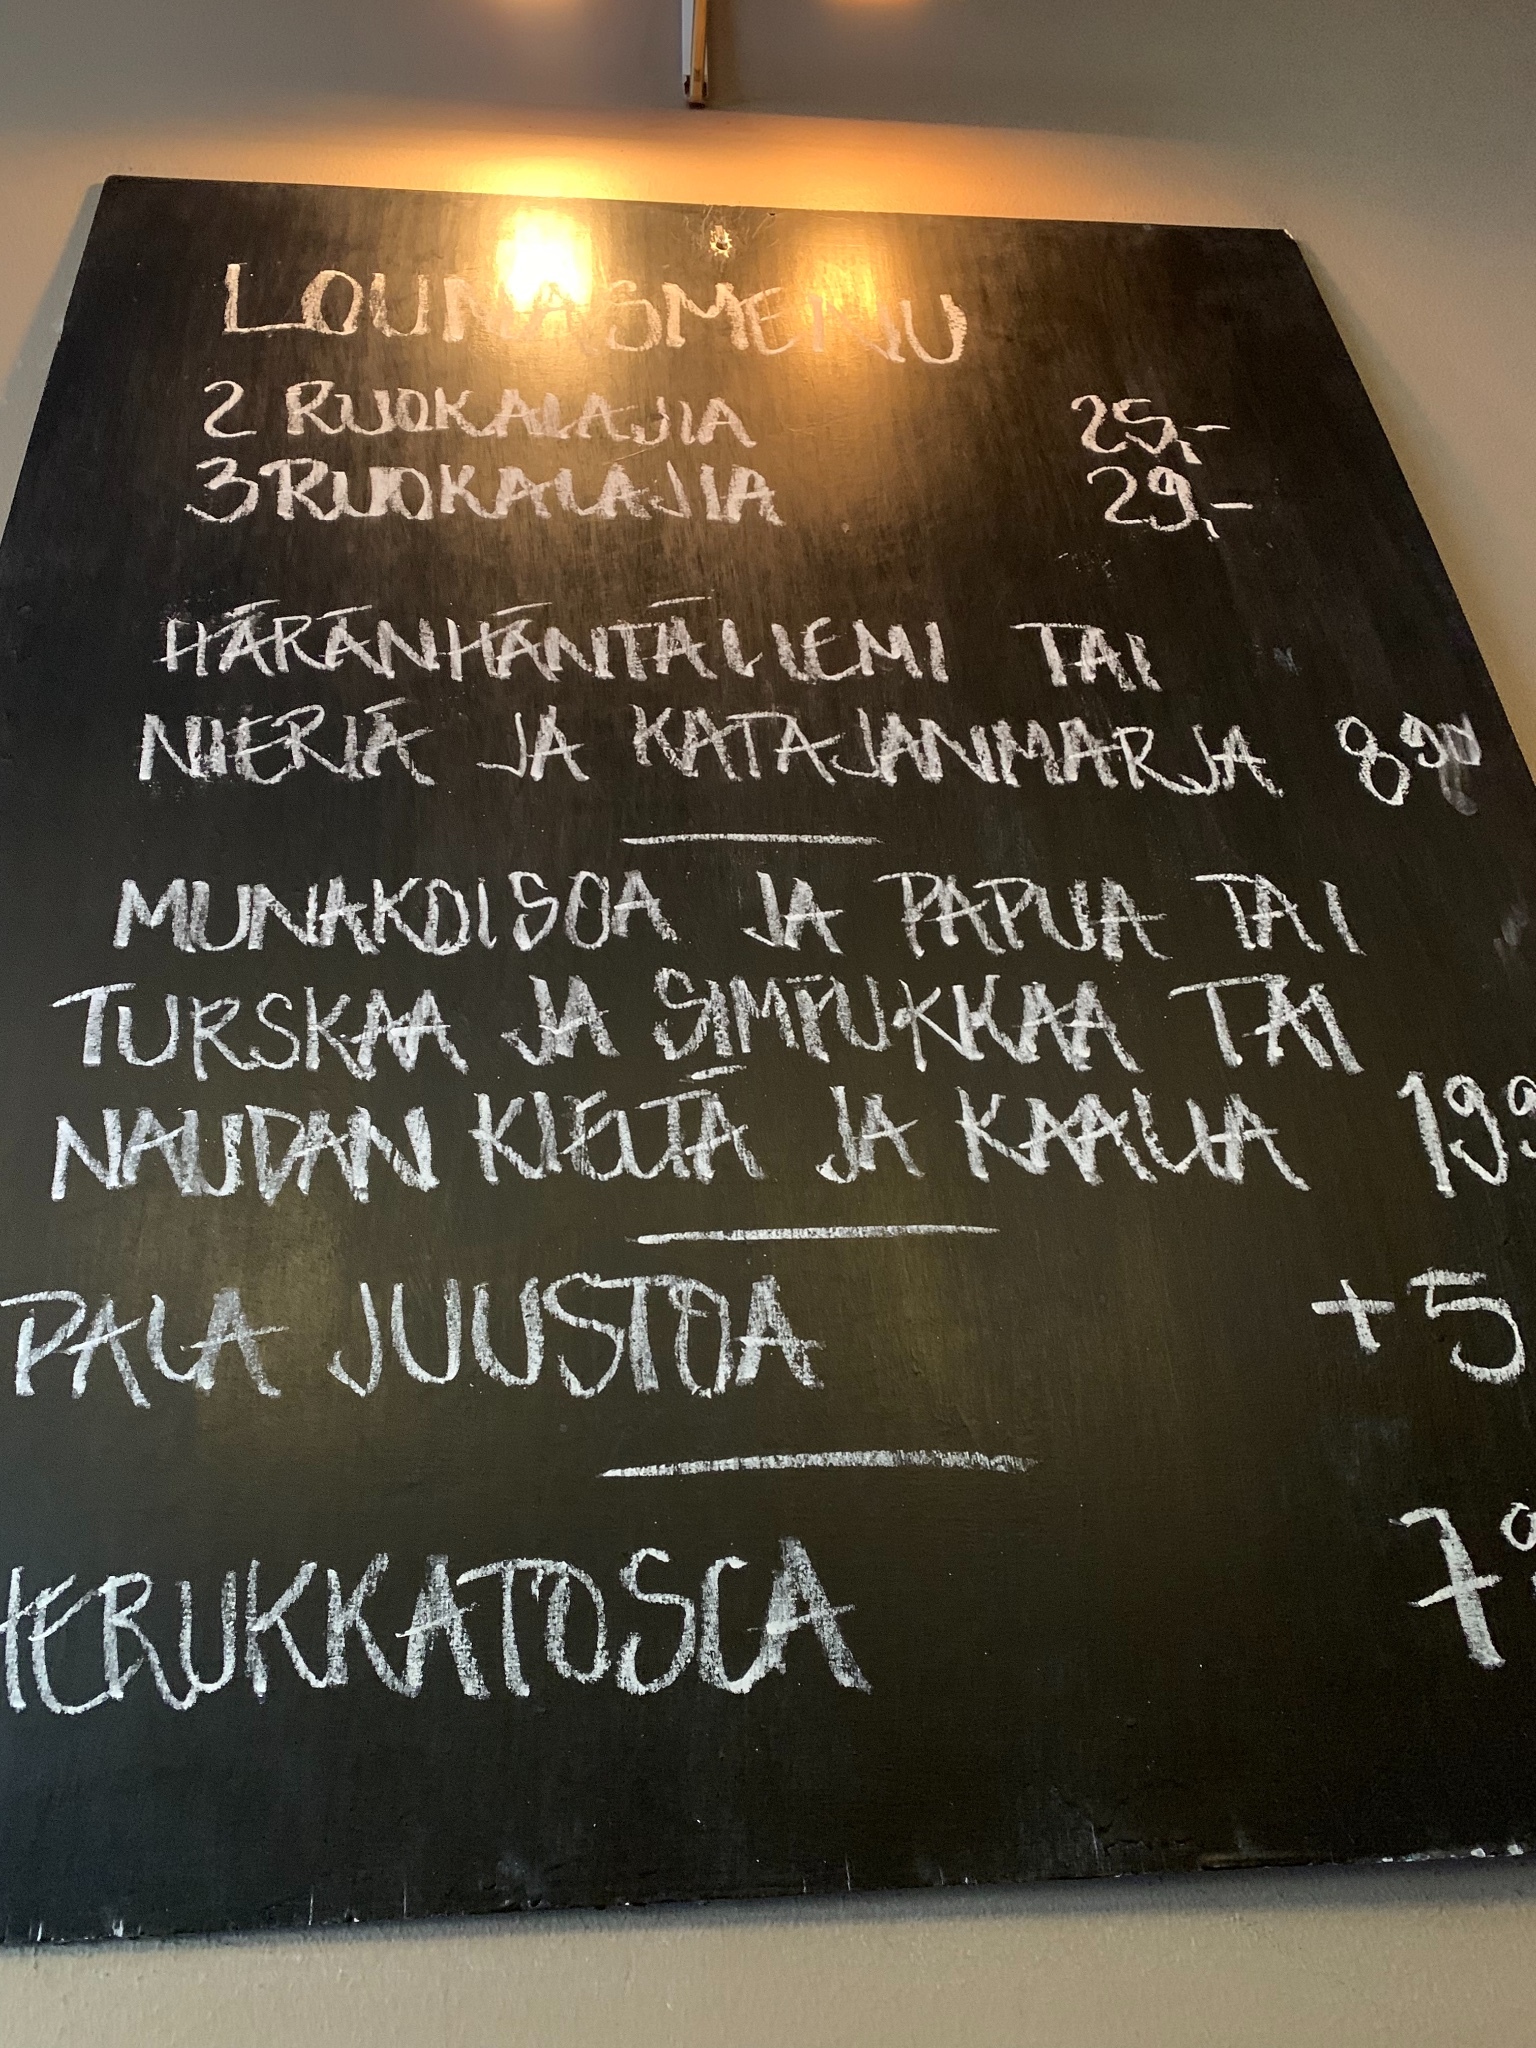 LOUNASMENU
2 RUOKALAJIA 25,-
3 RUOKALAJIA 29,-
HÄRÄNHÄNTÄLIEMI TAI
NIERIÄ JA KATAJANMARJA 8 90
MUNAKOISOA JA PAPUA TAI
TURSKAA JA SIMPUKKAA TAI
NAUDAN KIELTÄ JA KAALIA 199
PALA JUUSTOA +5
HERUKKATOSCA 7